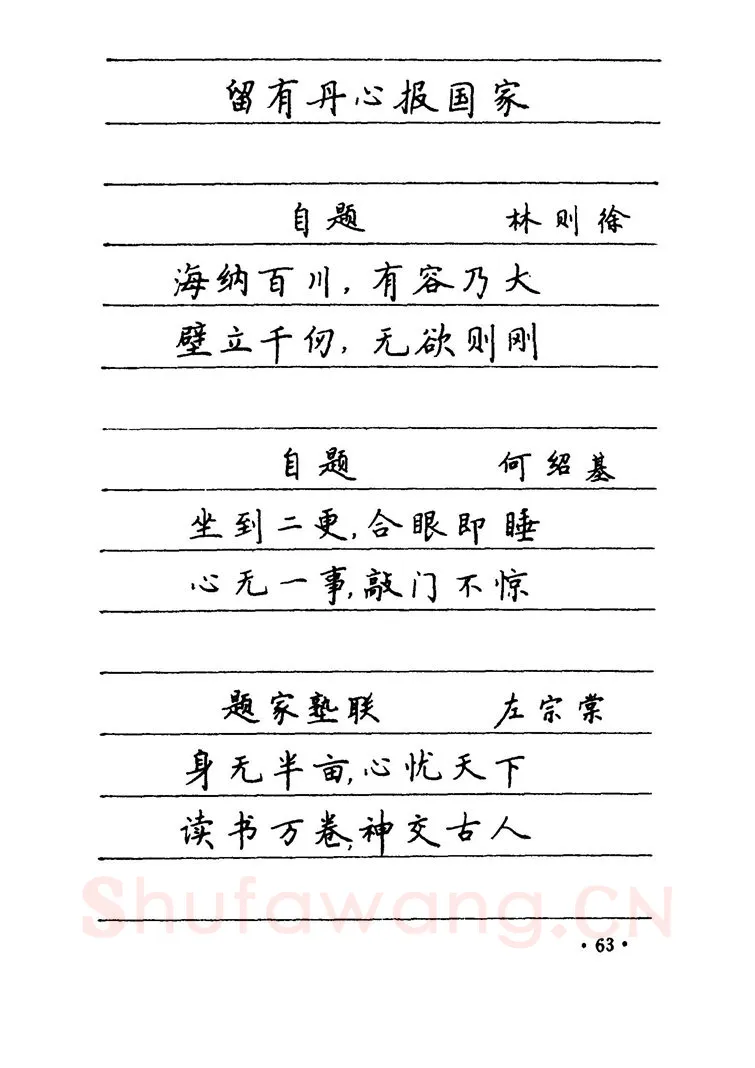 留有丹心报国家
自题 林则徐
海纳百川，有容乃大
壁立千仞，无欲则刚
自题 何绍基
坐到二更，合眼即睡
心无一事，敲门不惊
题家塾联 左宗棠
身无半亩，心忧天下
读书万卷，神交古人
Shufawang.CN
·63·